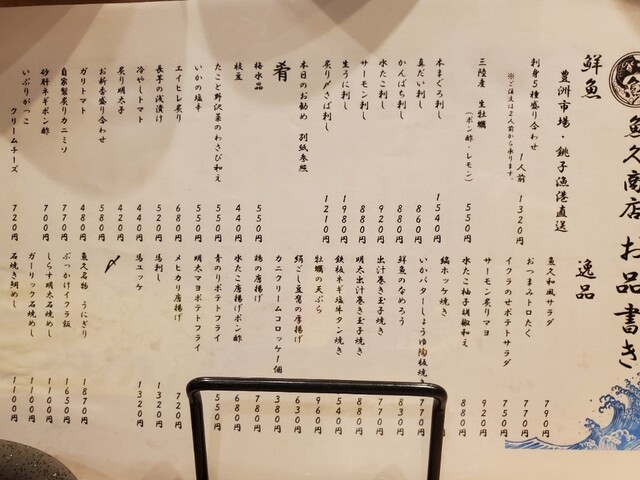 魚久商店 お品書き
鮮魚
豊洲市場・銚子漁港直送
刺身5種盛り合わせ 1人前 1320円
※ご注文は2人前から承ります。
三陸産 生牡蠣 (ポン酢・レモン) 550円
本まぐろ刺し 1540円
真だい刺し 860円
かんぱち刺し 880円
水たこ刺し 920円
サーモン刺し 880円
生うに刺し 1980円
炙り〆さば刺し 1210円
本日のお勧め 別紙参照
肴
梅水晶 550円
枝豆 440円
たこと野沢菜のわさび和え 550円
いかの塩辛 550円
エイヒレ炙り 680円
長芋の浅漬け 520円
冷やしトマト 440円
炙り明太子 420円
お新香盛り合わせ 580円
ガリトマト 480円
自家製炙りカニミソ 770円
砂肝ネギポン酢 700円
いぶりがっこ
クリームチーズ 720円
逸品
魚久和風サラダ 790円
おつまみトロたく 770円
イクラのせポテトサラダ 750円
サーモン炙りマヨ 920円
水たこ柚子胡椒和え 880円
縞ホッケ焼き
いかバターしょうゆ陶板焼き 770円
鮮魚のなめろう 830円
出汁巻き玉子焼き 770円
明太出汁巻き玉子焼き 880円
鉄板ネギ塩牛タン焼き 540円
牡蠣の天ぷら 960円
絹ごし豆腐の厚揚げ 630円
カニクリームコロッケ一個 380円
鶏の唐揚げ 780円
水たこ唐揚げポン酢 680円
青のりポテトフライ 550円
明太マヨポテトフライ
メヒカリ唐揚げ 720円
馬刺し 1320円
馬ユッケ 1320円
〆
魚久名物 うにぎり 1870円
ぶっかけイクラ飯 1650円
しらす明太石焼めし 1100円
ガーリック石焼めし 1100円
石焼き鯛めし 1100円